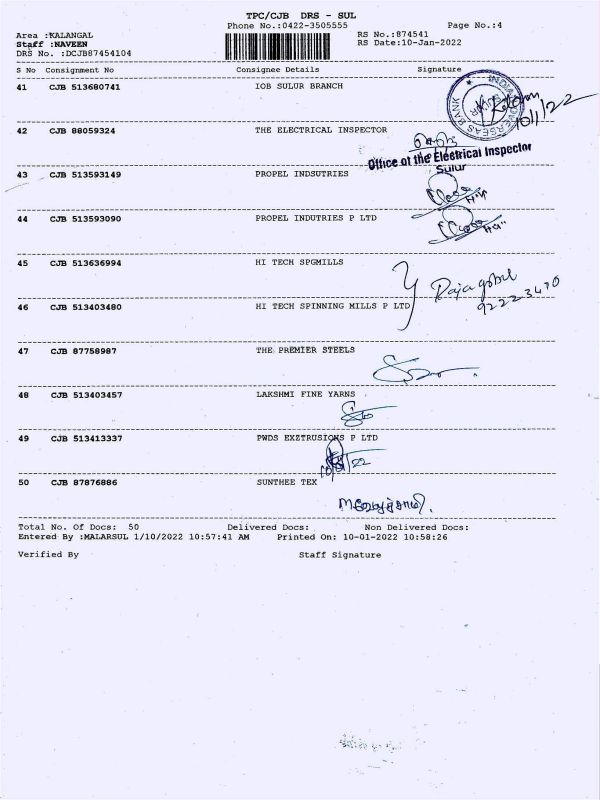 TPC/CJB DRS - SUL
Phone No.:0422-3505555 Page No.:4
Area :KALANGAL RS No.:874541
Staff :NAVEEN RS Date:10-Jan-2022
DRS No. :DCJB87454104
S No Consignment No Consignee Details Signature
41 CJB 513680741 IOB SULUR BRANCH
10/1/22
42 CJB 88059324 THE ELECTRICAL INSPECTOR
Office of the Electrical Inspector
Sulur
43 CJB 513593149 PROPEL INDSUTRIES
44 CJB 513593090 PROPEL INDUTRIES P LTD
45 CJB 513636994 HI TECH SPGMILLS
Rajagobal
46 CJB 513403480 HI TECH SPINNING MILLS P LTD
47 CJB 87758987 THE PREMIER STEELS
48 CJB 513403457 LAKSHMI FINE YARNS
49 CJB 513413337 PWDS EXZTRUSIONS P LTD
50 CJB 87876886 SUNTHEE TEX
Total No. Of Docs: 50 Delivered Docs: Non Delivered Docs:
Entered By :MALARSUL 1/10/2022 10:57:41 AM Printed On: 10-01-2022 10:58:26
Verified By Staff Signature